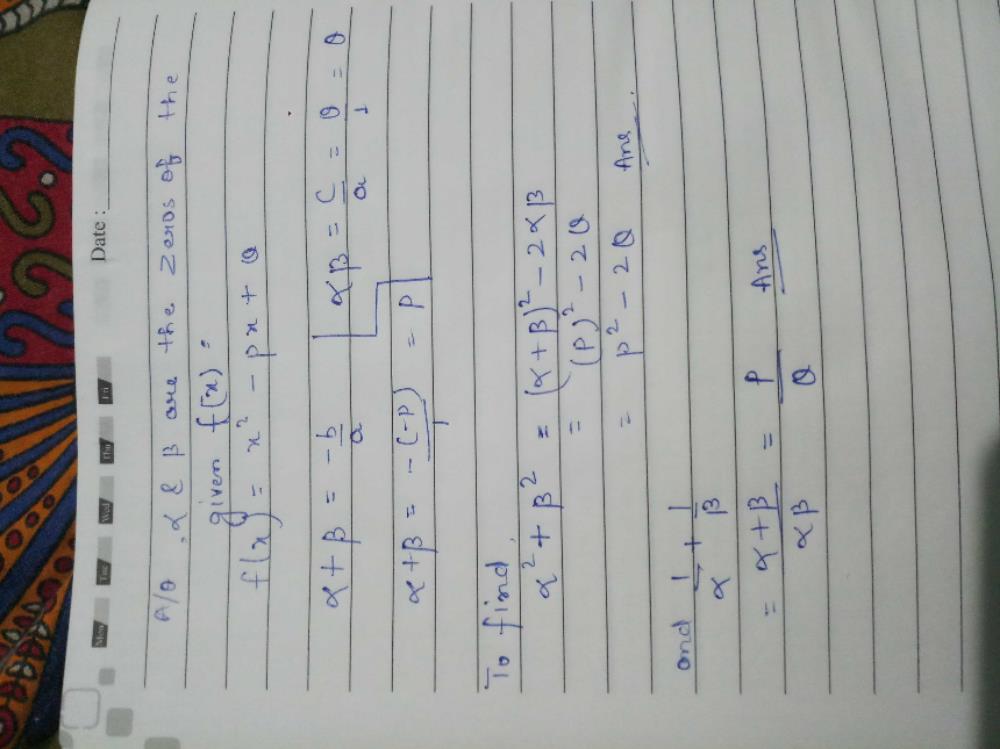 Mon Tue Wed Thu Fri Date :
A/Q , α & β are the Zeros of the
given f(x) :
f(x) = x² - px + Q
α + β = -b/a αβ = C/a = Q/1 = Q
α+β = -(-P)/1 = P
To find,
α² + β² = (α + β)² - 2αβ
= (P)² - 2Q
= P² - 2Q Ans.
and 1/α + 1/β
= α+β/αβ = P/Q Ans